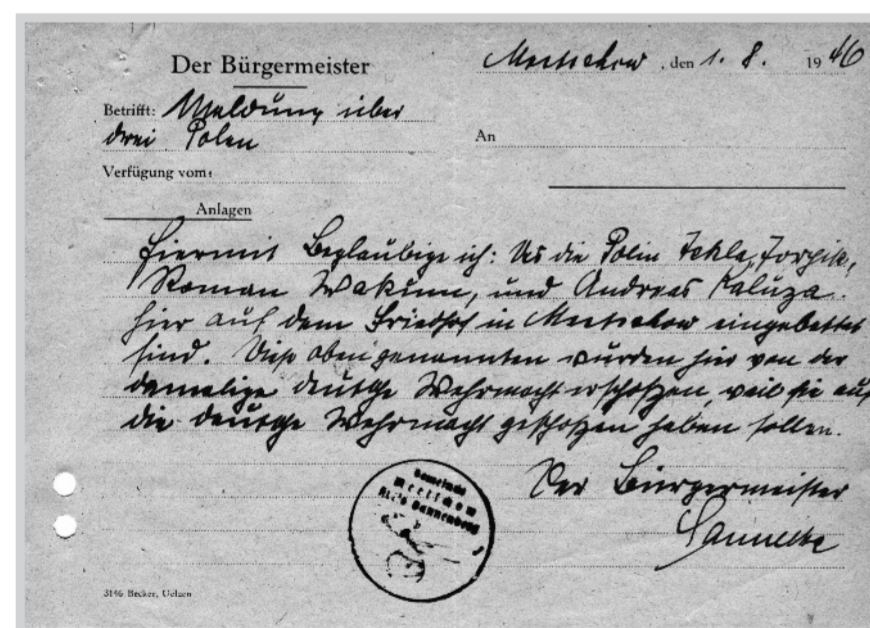 Der Bürgermeister
den 1. 8. 1946
Betrifft: Meldung über
drei Polen
An
Verfügung vom:
Anlagen
Hiermit Beglaubige ich: Das die Polin Tekla,
Roman Wakunn, und Andreas Kaluza.
hier auf dem Friedhof in eingebettet
sind. Diese oben genannten wurden hier von der
damalige deutsche Wehrmacht erschoßen, weil sie auf
die deutsche Wehrmacht geschoßen haben sollen.
Der Bürgermeister
Gemeinde
Kreis Dannenberg
3146 Becker, Uelzen